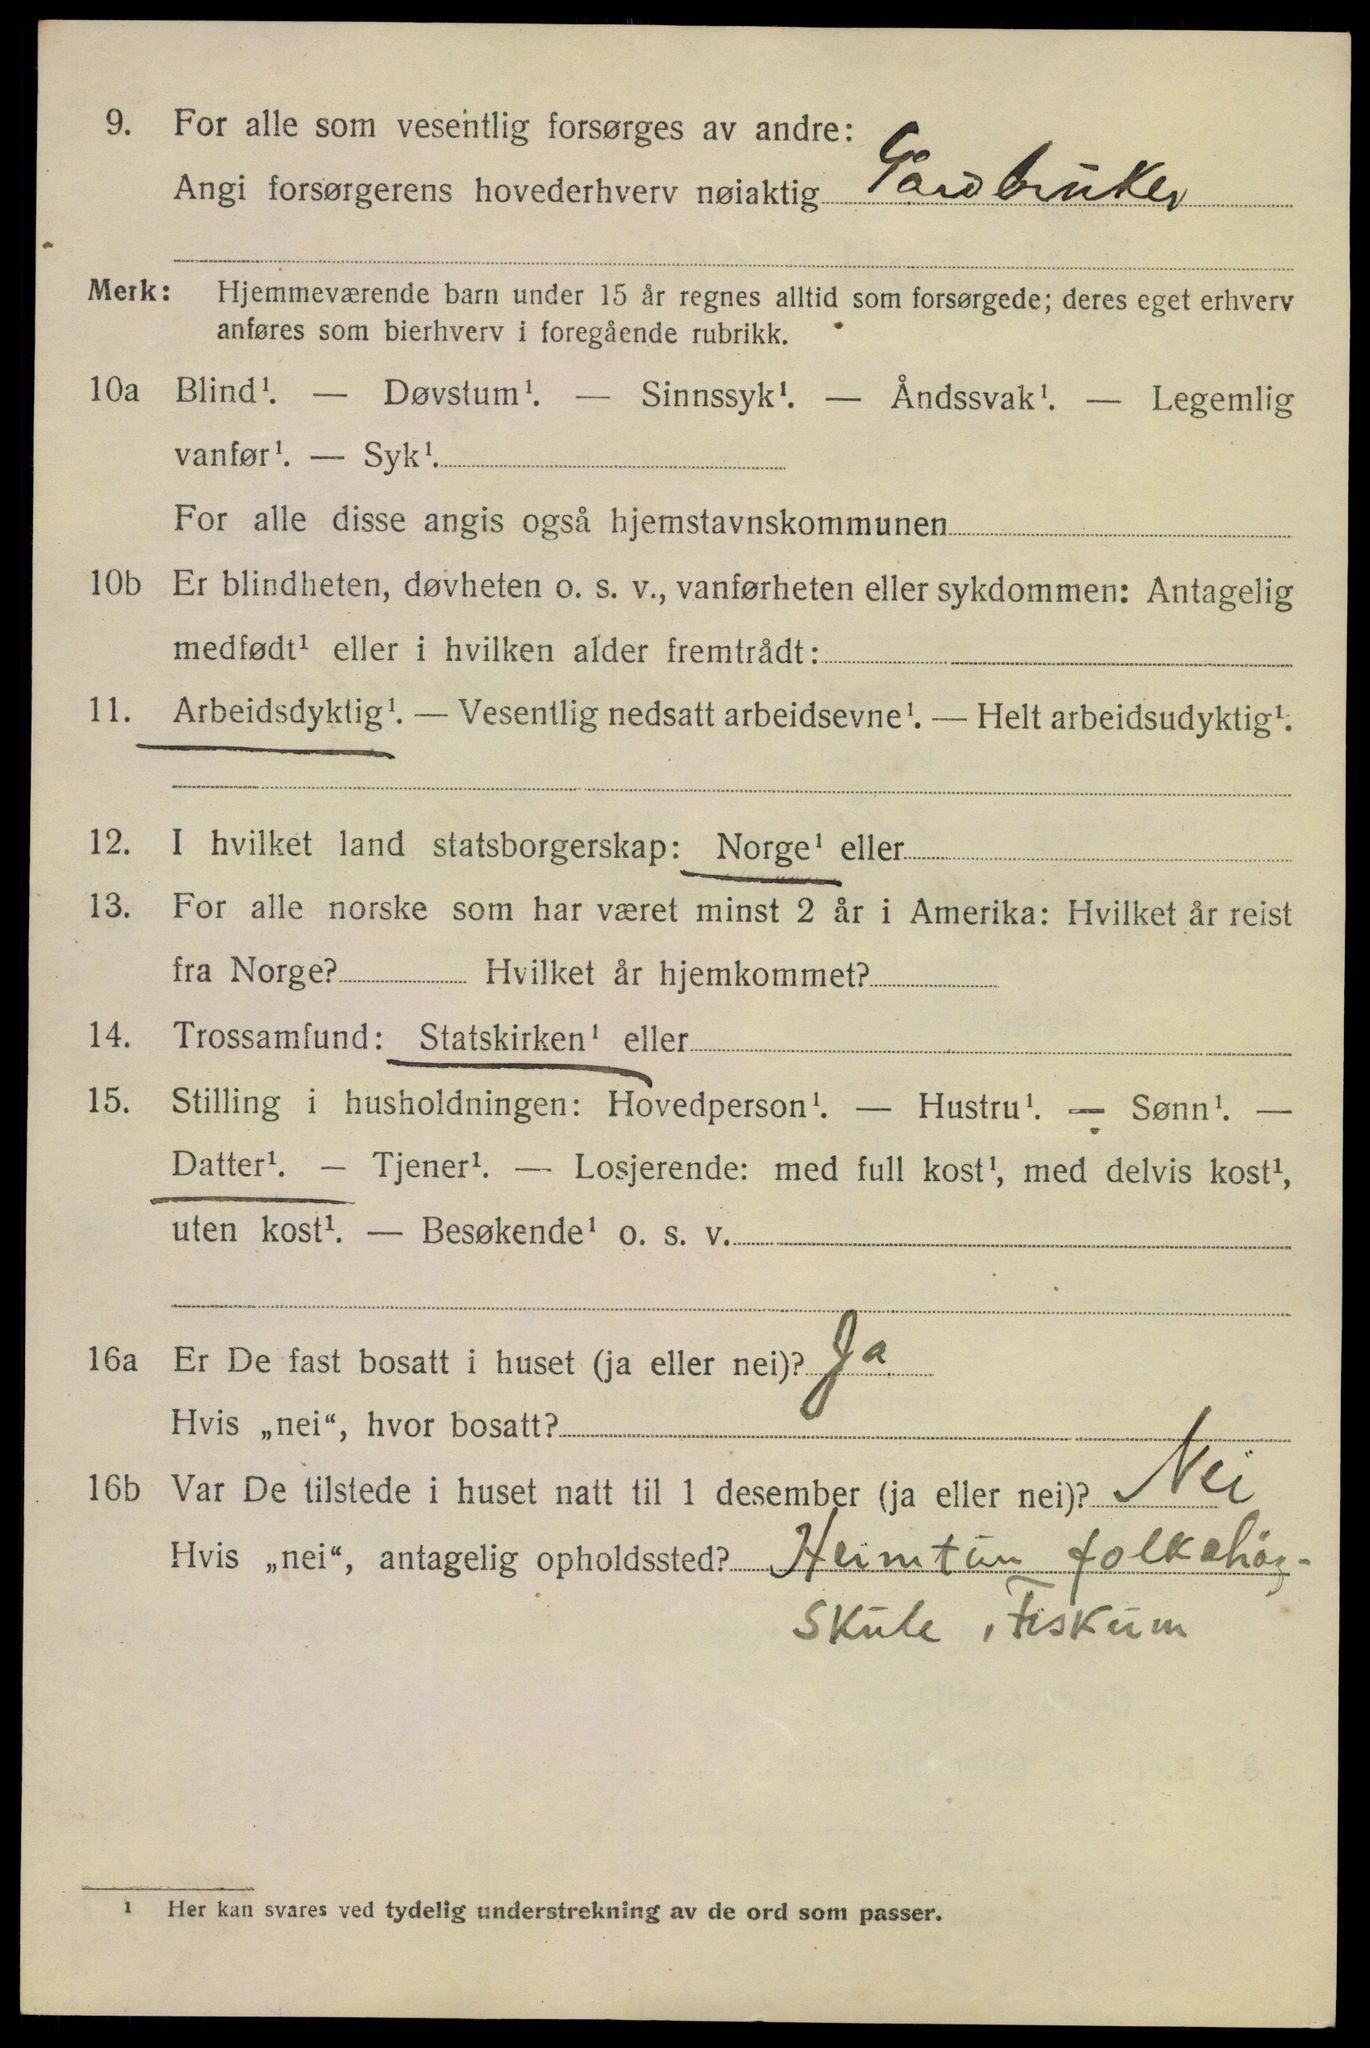 9. For alle som vesentlig forsørges av andre:
Angi forsørgerens hovederhverv nøiaktig Gardbruker
Merk: Hjemmeværende barn under 15 år regnes alltid som forsørgede; deres eget erhverv
anføres som bierhverv i foregående rubrikk.
10a Blind¹. — Døvstum¹. — Sinnssyk¹. — Åndssvak¹. — Legemlig
vanfør¹. — Syk¹.
For alle disse angis også hjemstavnskommunen
10b Er blindheten, døvheten o. s. v., vanførheten eller sykdommen: Antagelig
medfødt¹ eller i hvilken alder fremtrådt:
11. Arbeidsdyktig¹. — Vesentlig nedsatt arbeidsevne¹. — Helt arbeidsudyktig¹.
12. I hvilket land statsborgerskap: Norge¹ eller
13. For alle norske som har været minst 2 år i Amerika: Hvilket år reist
fra Norge? Hvilket år hjemkommet?
14. Trossamfund: Statskirken¹ eller
15. Stilling i husholdningen: Hovedperson¹. — Hustru¹. — Sønn¹. —
Datter¹. — Tjener¹. — Losjerende: med full kost¹, med delvis kost¹,
uten kost¹. — Besøkende¹ o. s. v.
16a Er De fast bosatt i huset (ja eller nei)? Ja
Hvis „nei“, hvor bosatt?
16b Var De tilstede i huset natt til 1 desember (ja eller nei)? Nei
Hvis „nei“, antagelig opholdssted? Heimtun folkehøg-
skule, Fiskum
¹ Her kan svares ved tydelig understrekning av de ord som passer.